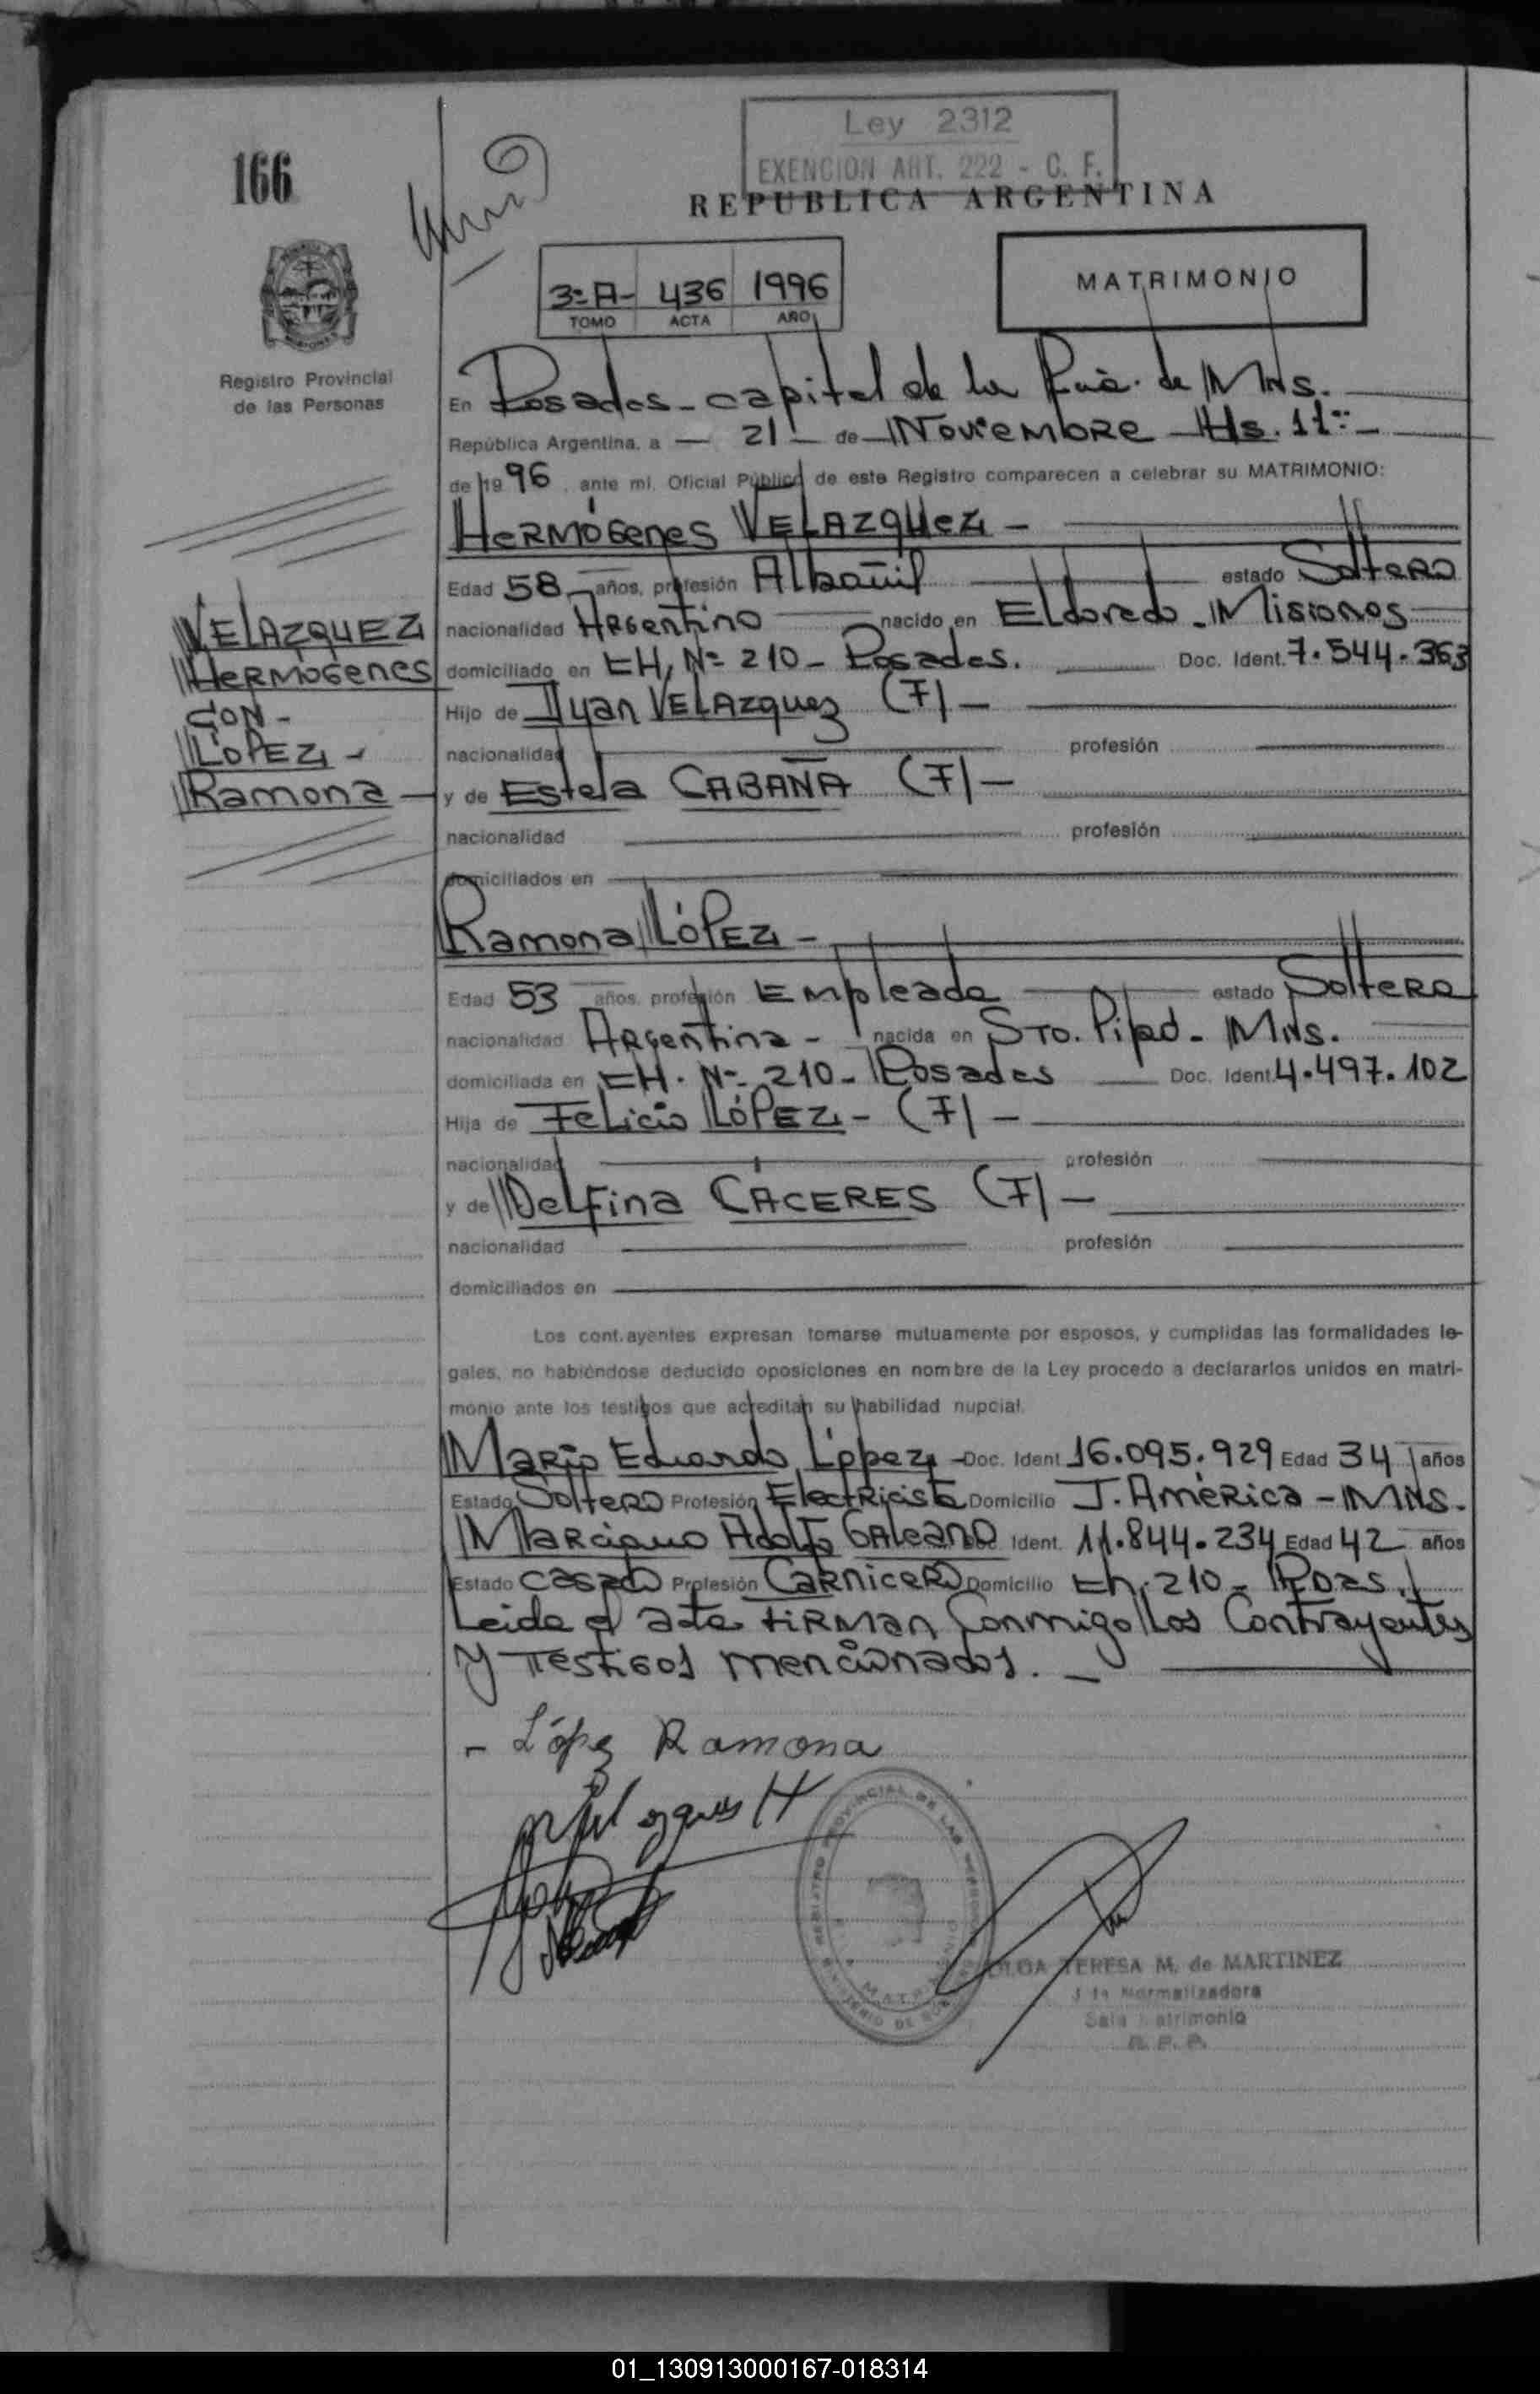 166
Ley 2312
EXENCION ART. 222 - C. F.
REPUBLICA ARGENTINA
3º A- 436 1996
TOMO ACTA AÑO
MATRIMONIO
Registro Provincial
de las Personas
En Posadas - capital de la Pcia. de Mns.
República Argentina, a 21 de Noviembre Hs. 11
de 1996, ante mí, Oficial Público de este Registro comparecen a celebrar su MATRIMONIO:
HERMÓGENES VELAZQUEZ -
Edad 58 años, profesión Albañil estado Soltero
nacionalidad Argentino nacido en Eldorado - Misiones
domiciliado en CH, Nº 210 - Posadas. Doc. Ident. 7.544.363
Hijo de Juan VELAZQUEZ (F) -
nacionalidad profesión
y de Estela CABAÑA (F) -
nacionalidad profesión
domiciliados en
VELAZQUEZ
HERMÓGENES
CON -
LÓPEZ -
Ramona
Ramona LÓPEZ -
Edad 53 años, profesión Empleada estado Soltera
nacionalidad Argentina - nacida en Sto. Pipó - Mns.
domiciliada en CH. Nº 210 - Posadas Doc. Ident. 4.497.102
Hija de Felicio LÓPEZ - (F) -
nacionalidad profesión
y de Delfina CÁCERES (F) -
nacionalidad profesión
domiciliados en
Los contrayentes expresan tomarse mutuamente por esposos, y cumplidas las formalidades le-
gales, no habiéndose deducido oposiciones en nombre de la Ley procedo a declararlos unidos en matri-
monio ante los testigos que acreditan su habilidad nupcial.
Mario Eduardo López - Doc. Ident 16.095.929 Edad 34 años
Estado Soltero Profesión Electricista Domicilio J. América - MNS.
Marciano Adolfo Galeano Ident. 11.844.234 Edad 42 años
Estado Casado Profesión Carnicero Domicilio Ch. 210 - Pdas.
Leida el acta firman conmigo los Contrayentes
y Testigos mencionados. -
- López Ramona
TERESA M. de MARTINEZ
Normalizadora
Sala Matrimonio
R. P. P.
01_130913000167-018314